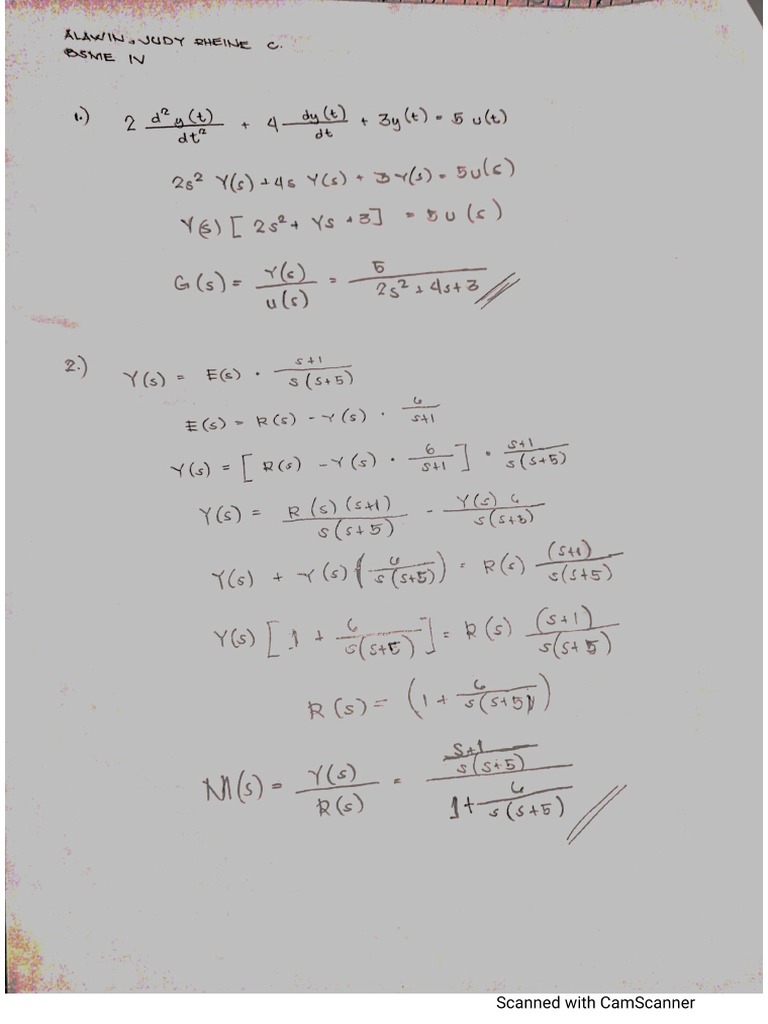 ALAWIN, JUDY RHEINE C.
BSME IV
1.) 2 d²y(t)/dt² + 4 dy(t)/dt + 3y(t) = 5 u(t)
2s² Y(s) + 4s Y(s) + 3Y(s) = 5U(s)
Y(s) [ 2s² + Ys + 3 ] = 5U(s)
G(s) = Y(s)/U(s) = 5/(2s² + 4s + 3)
2.) Y(s) = E(s) · (s+1)/(s(s+5))
E(s) = R(s) - Y(s) · 6/(s+1)
Y(s) = [ R(s) - Y(s) · 6/(s+1) ] · (s+1)/(s(s+5))
Y(s) = R(s)(s+1)/(s(s+5)) - Y(s) 6/(s(s+3))
Y(s) + Y(s) (6/(s(s+5))) = R(s) (s+1)/(s(s+5))
Y(s) [ 1 + 6/(s(s+5)) ] = R(s) (s+1)/(s(s+5))
R(s) = (1 + 6/(s(s+5)))
M(s) = Y(s)/R(s) = ((s+1)/(s(s+5)))/(1 + 6/(s(s+5)))
Scanned with CamScanner